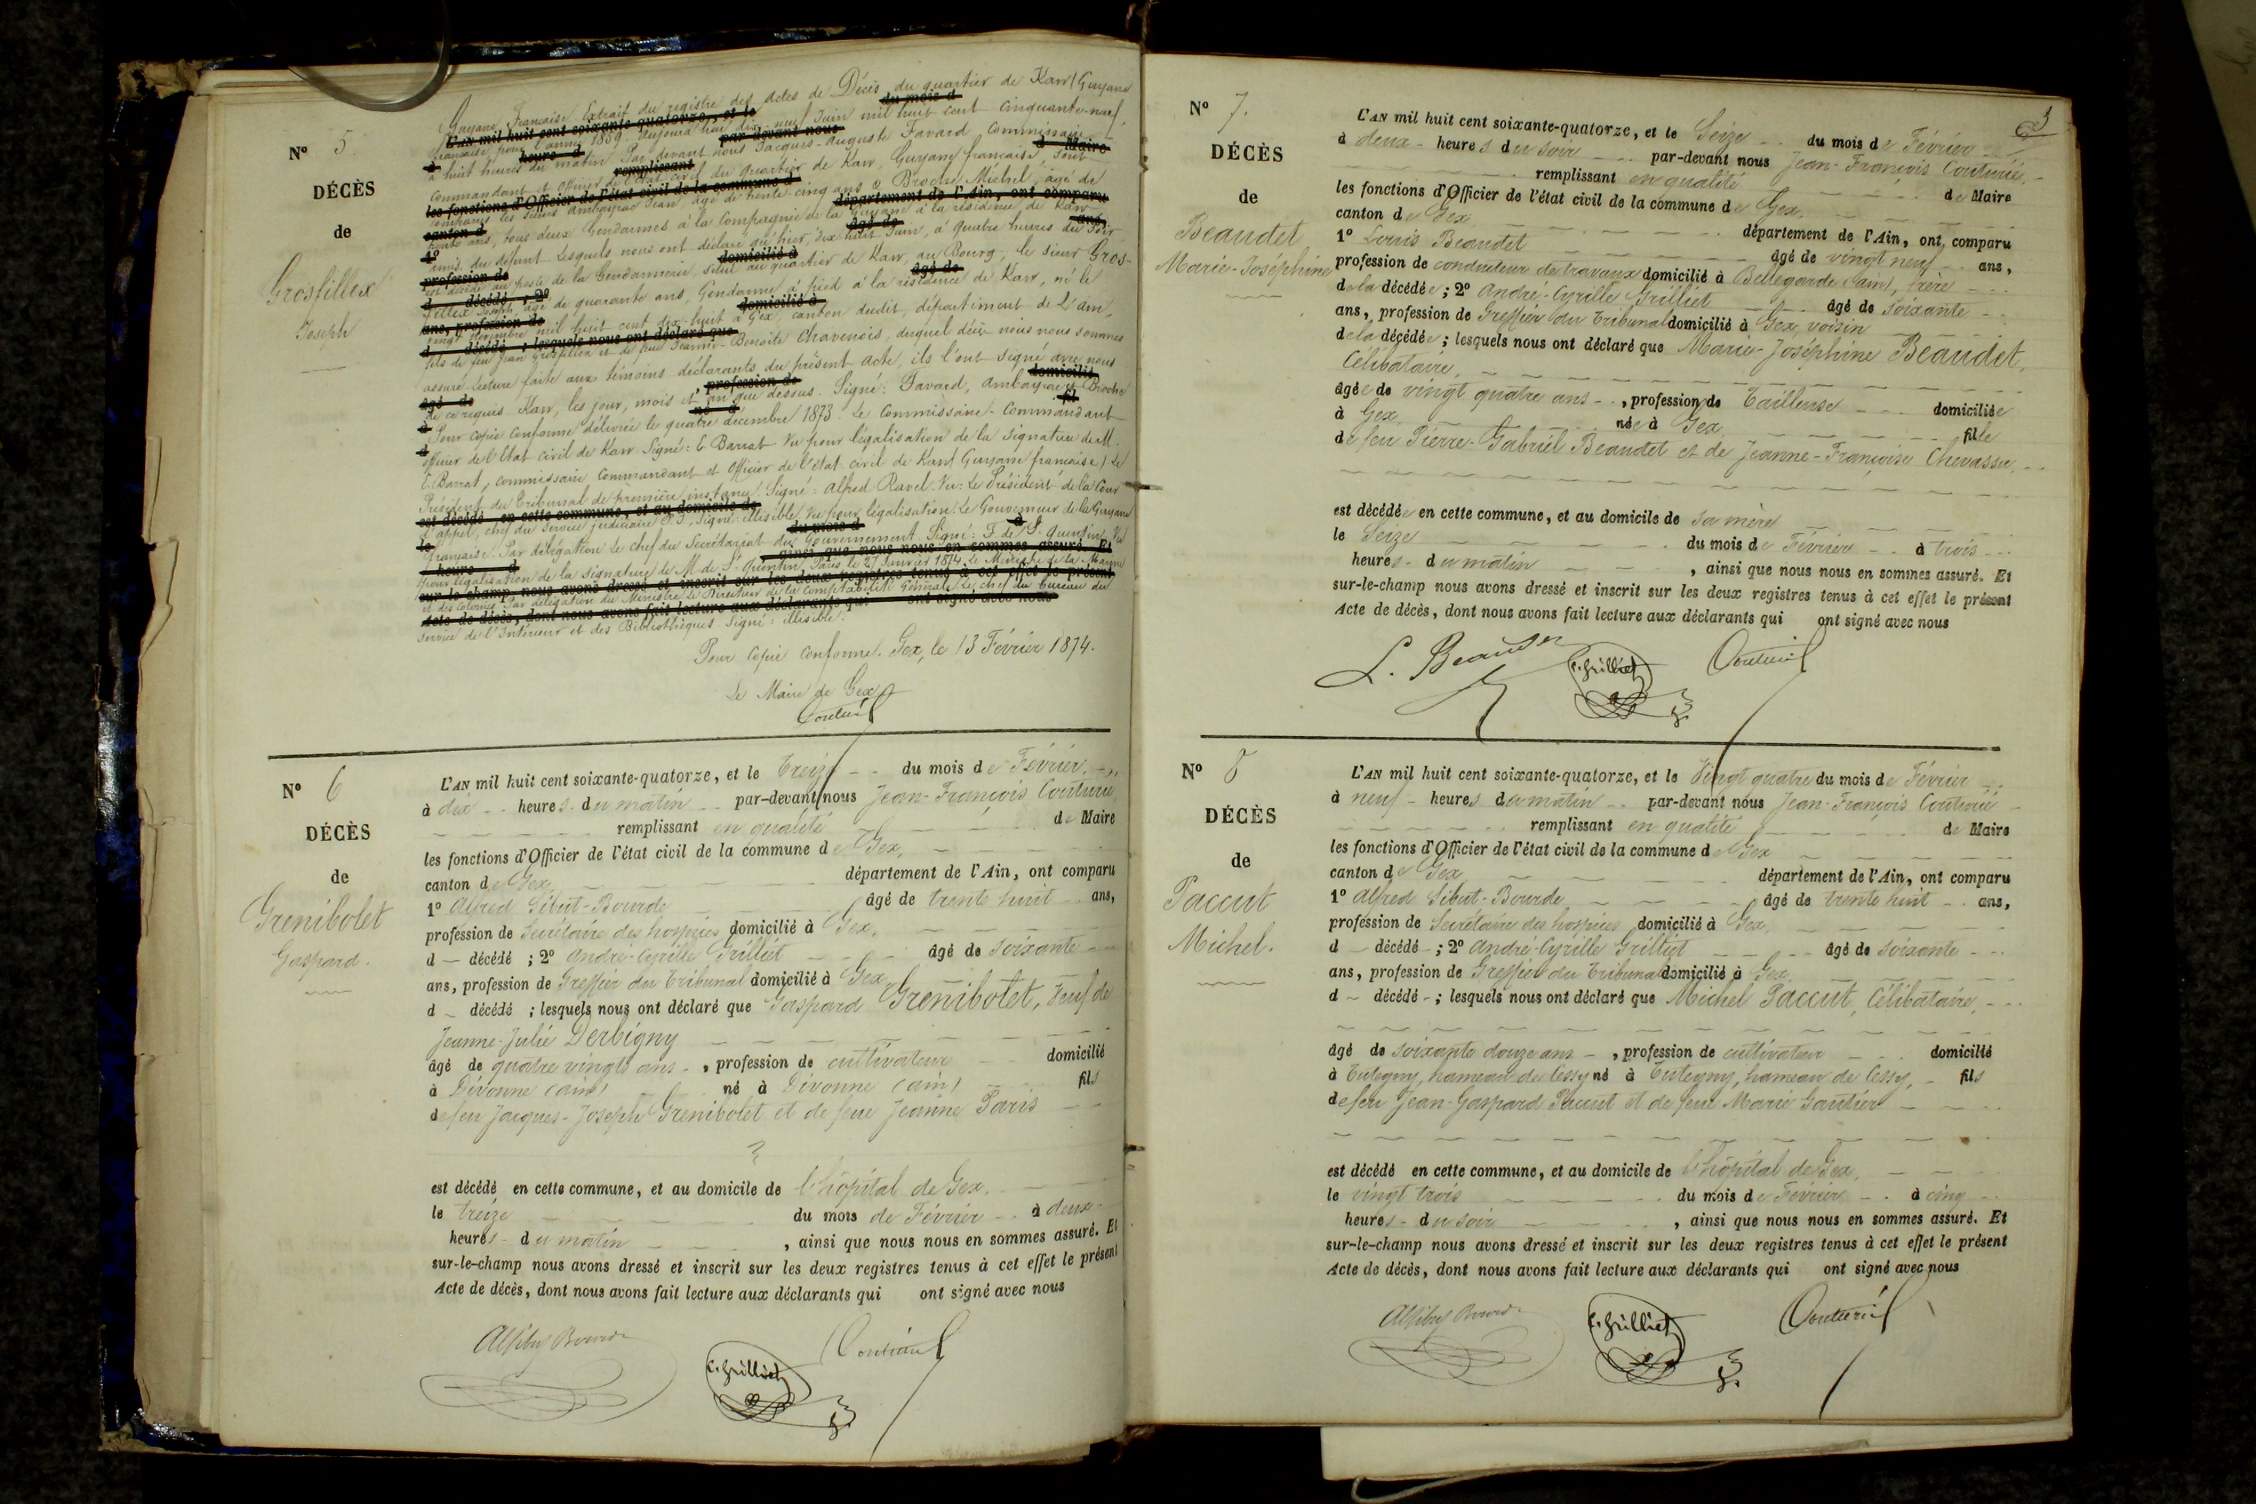 N° 5
DÉCÈS
de
Grosfillex
Joseph
Guyane Française Extrait du registre des actes de Décès du quartier de Kaw (Guyane
française pour l'année 1859. Aujourd'hui dix neuf Juin mil huit cent cinquante-neuf
à huit heures du matin Par devant nous Jacques-Auguste Favard, Commissaire
Commandant et Officier de l'état civil du quartier de Kaw, Guyane française, sont
comparus les sieurs Ambayrac Jean âgé de trente cinq ans & Broche Michel, âgé de
trente ans, tous deux Gendarmes à la Compagnie de la Guyane à la résidence de Kaw
amis du défunt Lesquels nous ont déclaré qu'hier, dix huit Juin, à quatre heures du soir
est décédé au poste de la Gendarmerie, situé au quartier de Kaw, au Bourg, le sieur Gros-
fillex Joseph, âgé de quarante ans, Gendarme à pied à la résidence de Kaw, né le
vingt Novembre mil huit cent dix-huit à Gex, canton dudit, département de L'ain,
fils de feu Jean Grosfillex et de feue Jeanne-Benoite Chavenois, duquel décès nous nous sommes
assuré. Lecture faite aux témoins déclarants du présent acte, ils l'ont signé avec nous
de ce requis Kaw, les jour, mois et an que dessus. Signé: Favard, Ambayrac et Broche
Pour copie conforme délivrée le quatre décembre 1873 Le Commissaire-Commandant
officier de l'Etat civil de Kaw Signé: E. Barrat Vu pour légalisation de la signature de M.
E. Barrat, commissaire Commandant et Officier de l'état civil de Kaw (Guyane française) Le
Président du Tribunal de première instance. Signé: Alfred Ravel. Vu: Le Président de la Cour
d'appel, chef du Service judiciaire P.I, Signé: illisible. Vu pour légalisation Le Gouverneur de la Guyane
française. Par délégation Le chef du Secrétariat du Gouvernement. Signé: F. de St. Quentin. Vu
pour légalisation de la signature de M. de St. Quentin, Paris le 27 Janvier 1874. Le Ministre de la Marine
et des Colonies. Par délégation du Ministre Le Directeur de la Comptabilité Générale Le chef du bureau du
Service de l'Intérieur et des Bibliothèques Signé: illisible.
Pour copie conforme. Gex, le 13 Février 1874.
Le Maire de Gex
Couturié
N° 6
DÉCÈS
de
Grenibolet
Gaspard.
L'AN mil huit cent soixante-quatorze, et le Treize du mois de Février
à dix heures du matin par-devant nous Jean-François Couturié
remplissant en qualité de Maire
les fonctions d'Officier de l'état civil de la commune de Gex,
canton de Gex département de l'Ain, ont comparu
1° Alfred Sibut-Bourde âgé de trente huit ans,
profession de Secrétaire des hospices domicilié à Gex,
d décédé ; 2° André-Cyrille Grilliet âgé de soixante
ans, profession de Greffier du Tribunal domicilié à Gex
d décédé ; lesquels nous ont déclaré que Gaspard Grenibolet, Veuf de
Jeanne-Julie Derbigny
âgé de quatre vingts ans , profession de cultivateur domicilié
à Divonne (ain) né à Divonne (ain) fils
de feu Jacques-Joseph Grenibolet et de feue Jeanne Paris
est décédé en cette commune, et au domicile de l'hôpital de Gex.
le treize du mois de Février à deux
heures du matin , ainsi que nous nous en sommes assuré. Et
sur-le-champ nous avons dressé et inscrit sur les deux registres tenus à cet effet le présent
Acte de décès, dont nous avons fait lecture aux déclarants qui ont signé avec nous
C. Grilliet Couturié
3
N° 7.
DÉCÈS
de
Beaudet
Marie-Joséphine
L'AN mil huit cent soixante-quatorze, et le Seize du mois de Février
à deux heures du soir par-devant nous Jean-François Couturié
remplissant en qualité de Maire
les fonctions d'Officier de l'état civil de la commune de Gex,
canton de Gex département de l'Ain, ont comparu
1° Louis Beaudet âgé de vingt neuf ans,
profession de conducteur de travaux domicilié à Bellegarde (ain), frère
de la décédée ; 2° André-Cyrille Grilliet âgé de soixante
ans, profession de Greffier du Tribunal domicilié à Gex, voisin
de la décédée ; lesquels nous ont déclaré que Marie-Joséphine Beaudet,
Célibataire,
âgée de vingt quatre ans , profession de Tailleuse domiciliée
à Gex, née à Gex, fille
de feu Pierre-Gabriel Beaudet et de Jeanne-Françoise Chevassu,
est décédée en cette commune, et au domicile de sa mère
le Seize du mois de Février à trois
heures du matin , ainsi que nous nous en sommes assuré. Et
sur-le-champ nous avons dressé et inscrit sur les deux registres tenus à cet effet le présent
Acte de décès, dont nous avons fait lecture aux déclarants qui ont signé avec nous
L. Beaudet C. Grilliet Couturié
N° 8
DÉCÈS
de
Paccut
Michel.
L'AN mil huit cent soixante-quatorze, et le Vingt quatre du mois de Février
à neuf heures du matin par-devant nous Jean-François Couturié
remplissant en qualité de Maire
les fonctions d'Officier de l'état civil de la commune de Gex
canton de Gex département de l'Ain, ont comparu
1° Alfred Sibut-Bourde âgé de trente huit ans,
profession de Secrétaire des hospices domicilié à Gex,
d décédé ; 2° André-Cyrille Grilliet âgé de soixante
ans, profession de Greffier du Tribunal domicilié à Gex
d décédé ; lesquels nous ont déclaré que Michel Paccut, Célibataire,
âgé de soixante douze ans , profession de cultivateur domicilié
à Tutegny, hameau de Cessy né à Tutegny, hameau de Cessy, fils
de feu Jean-Gaspard Paccut et de feue Marie Gautier
est décédé en cette commune, et au domicile de l'hôpital de Gex,
le vingt trois du mois de Février à cinq
heures du soir , ainsi que nous nous en sommes assuré. Et
sur-le-champ nous avons dressé et inscrit sur les deux registres tenus à cet effet le présent
Acte de décès, dont nous avons fait lecture aux déclarants qui ont signé avec nous
C. Grilliet Couturié